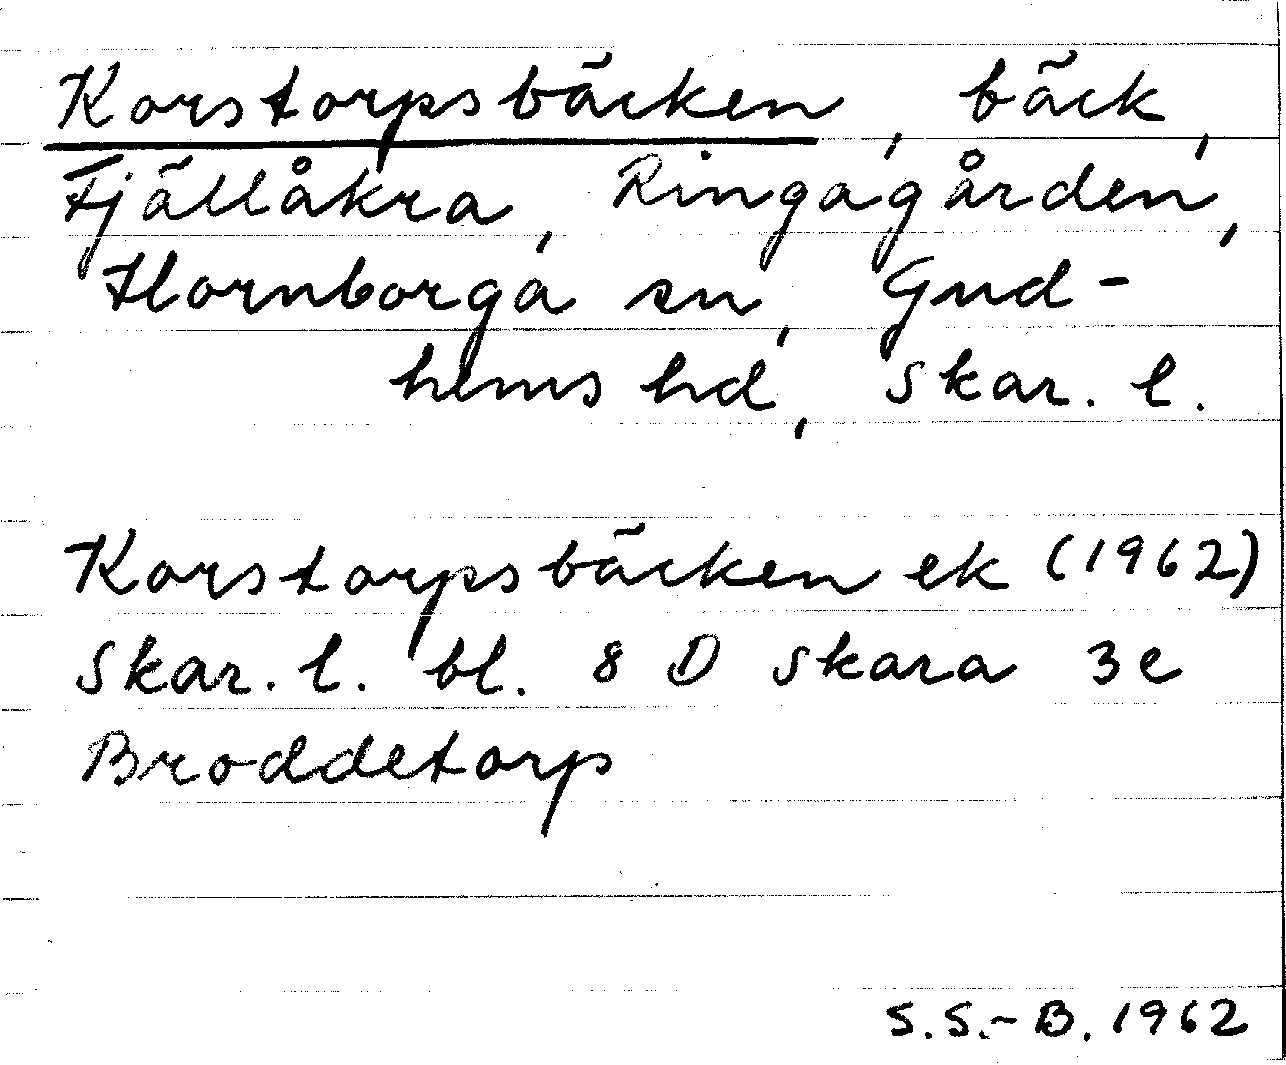 Korstorpsbäcken, bäck,
Fjällåkra, Ringagården,
Hornborga sn, Gud-
hems hd, Skar. l.
Korstorpsbäcken ek (1962)
Skar. l. bl. 8 D Skara 3e
Broddetorp
S. S.-B. 1962